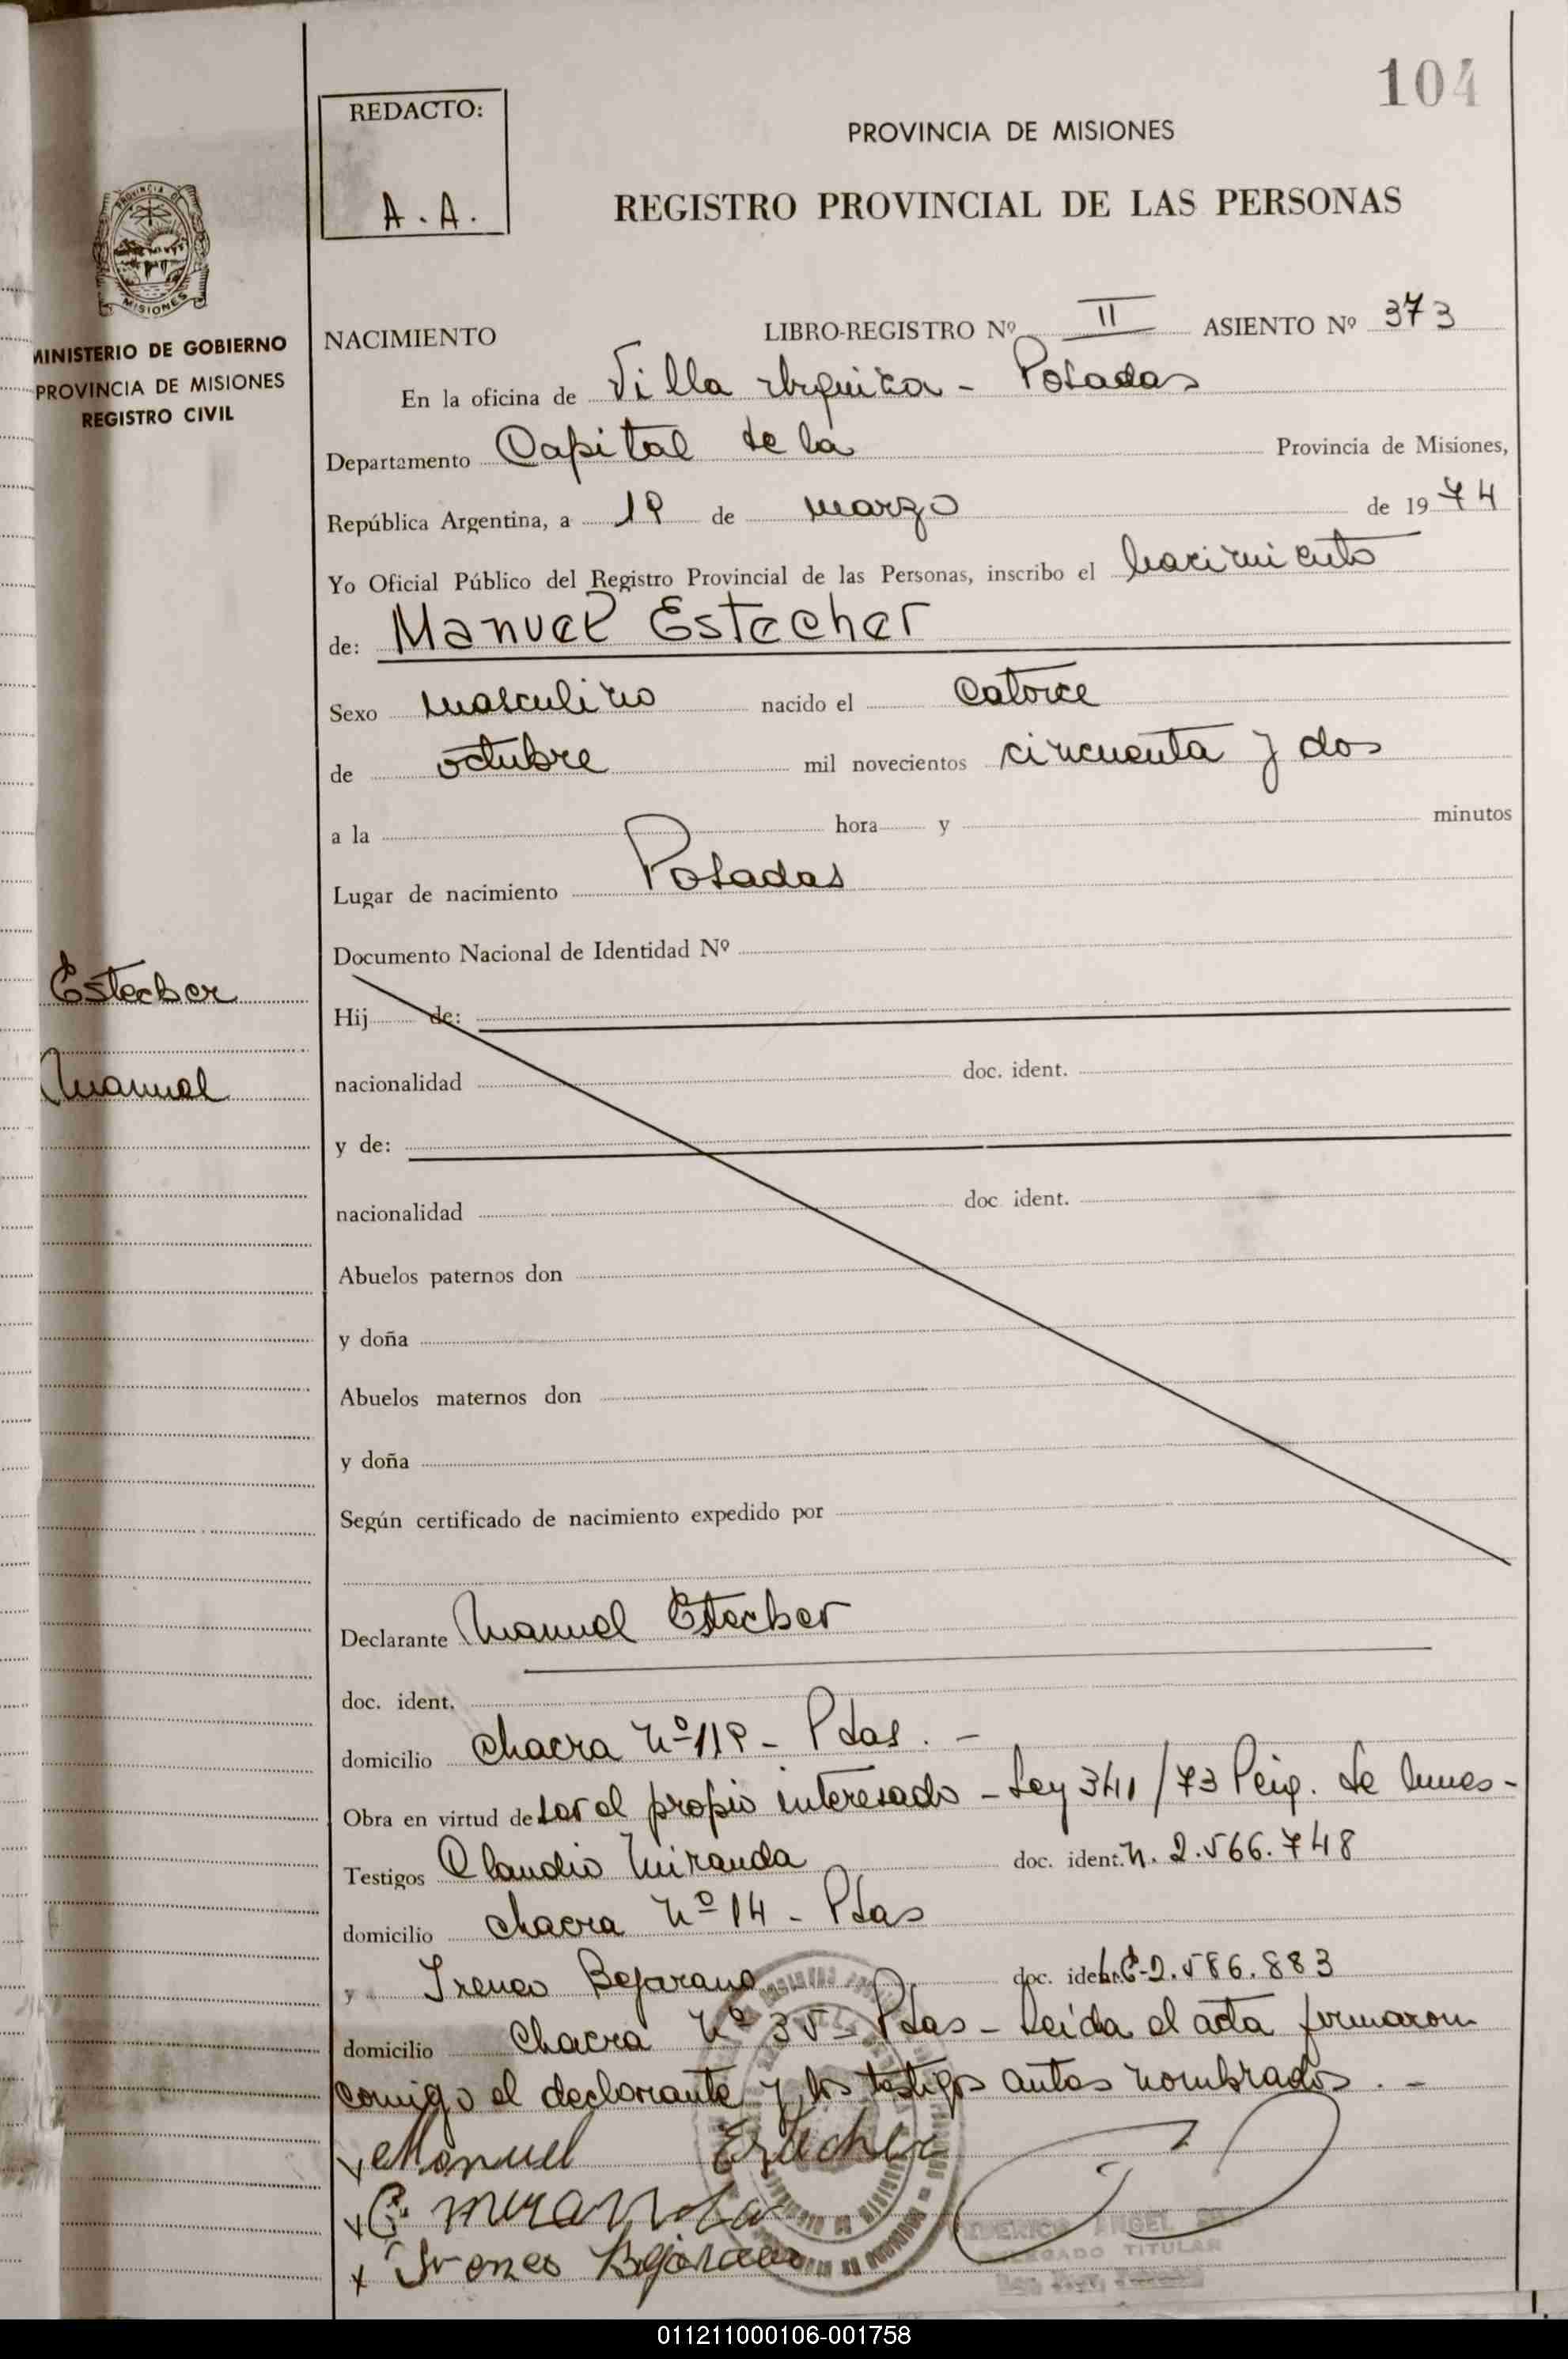 104
REDACTO:
A. A.
PROVINCIA DE MISIONES
REGISTRO PROVINCIAL DE LAS PERSONAS
PROVINCIA DE
MISIONES
MINISTERIO DE GOBIERNO
PROVINCIA DE MISIONES
REGISTRO CIVIL
NACIMIENTO LIBRO-REGISTRO Nº II ASIENTO Nº 373
En la oficina de Villa Urquiza - Posadas
Departamento Capital de la Provincia de Misiones,
República Argentina, a 19 de marzo de 1974
Yo Oficial Público del Registro Provincial de las Personas, inscribo el nacimiento
de: Manuel Estecher
Sexo masculino nacido el catorce
de octubre mil novecientos cincuenta y dos
a la hora y minutos
Lugar de nacimiento Posadas
Documento Nacional de Identidad Nº
Estecher
Manuel
Hij de:
nacionalidad doc. ident.
y de:
nacionalidad doc. ident.
Abuelos paternos don
y doña
Abuelos maternos don
y doña
Según certificado de nacimiento expedido por
Declarante Manuel Estecher
doc. ident.
domicilio Chacra Nº 119 - Pdas. -
Obra en virtud de ser el propio interesado - Ley 341/73
Testigos Claudio Miranda doc. ident. N. 2.566.748
domicilio Chacra Nº 14 - Pdas
y Ireneo Bejarano doc. ident. 2.586.883
domicilio Chacra Nº 35 - Pdas - Leída el acta firmaron
comigo el declarante y los testigos antes nombrados. -
Manuel Estecher
C. Miranda
Ireneo Bejarano
ANGEL
DELEGADO TITULAR
011211000106-001758